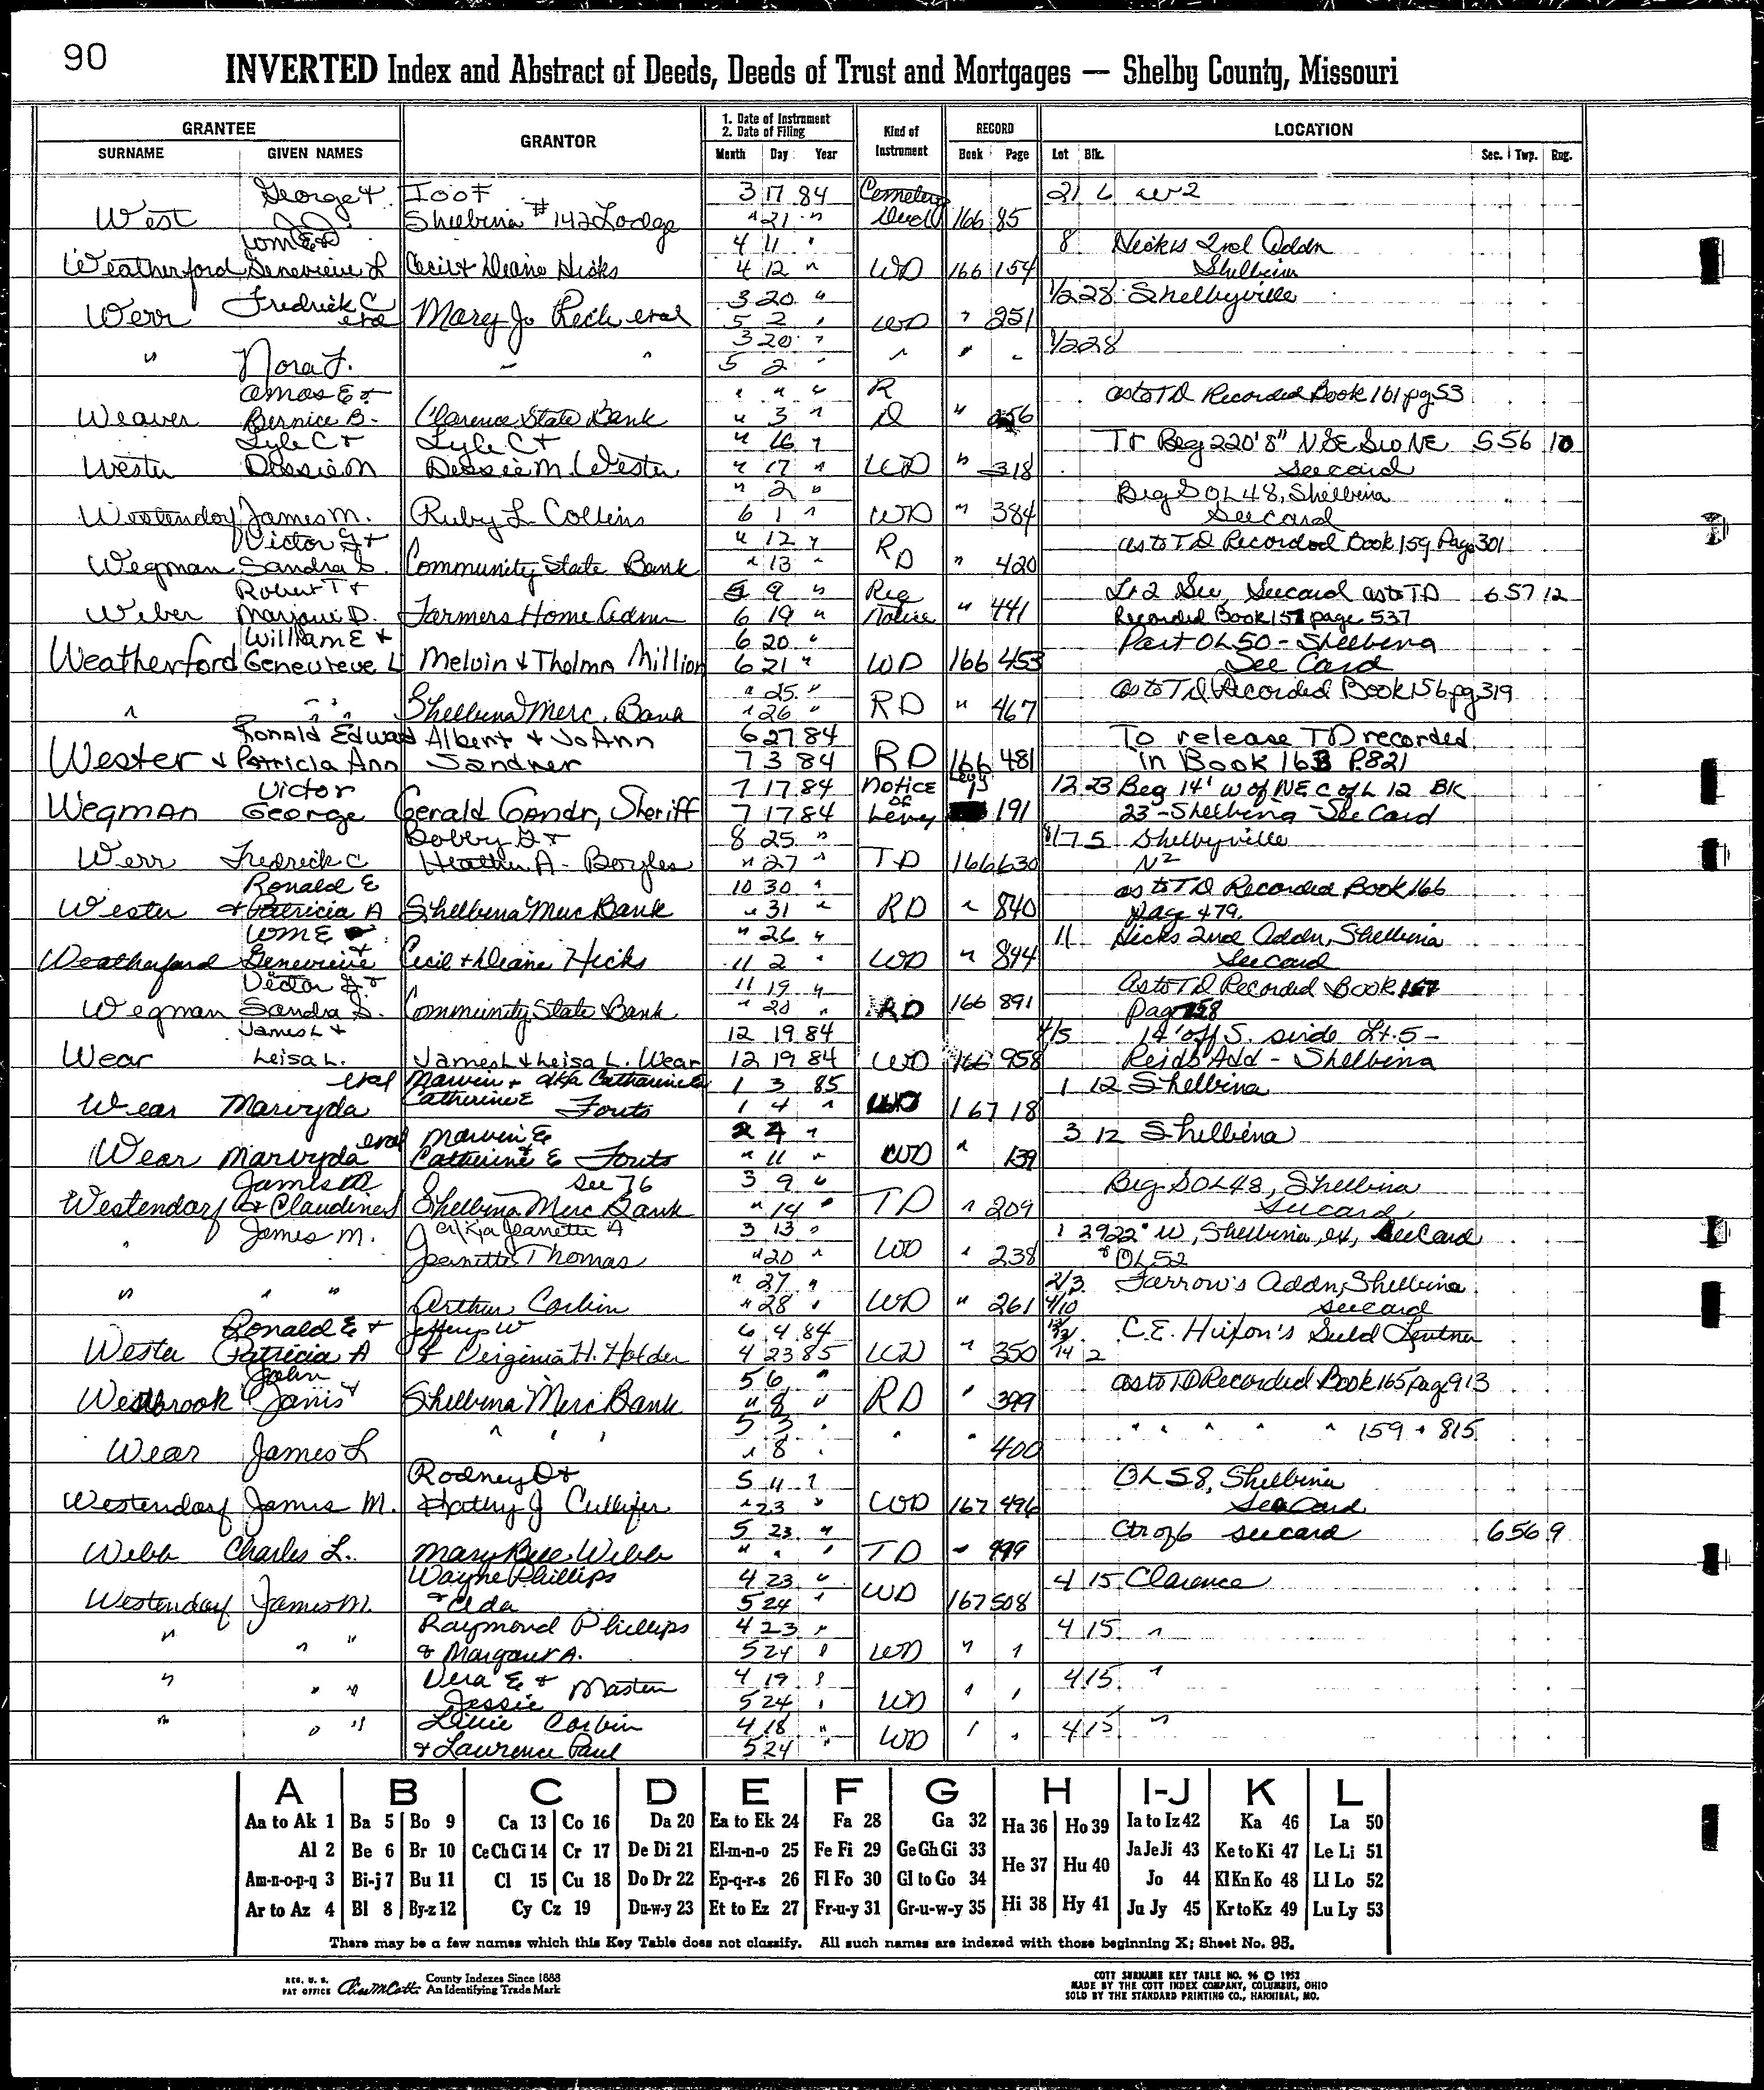 90
INVERTED Index and Abstract of Deeds, Deeds of Trust and Mortgages — Shelby County, Missouri
GRANTEE GRANTOR 1. Date of Instrument 2. Date of Filing Kind of Instrument RECORD LOCATION
SURNAME GIVEN NAMES Month Day Year Book Page Lot Blk. Sec. Twp. Rng.
George & IOOF 3 17 84 Cemetery 21 6 W2
West Shelbina #142 Lodge " 21 " Deed 166 85
Wm E & 4 11 " 8 Hicks 2nd Addn
Weatherford Genevieve L Cecil & Diane Hicks 4 12 " WD 166 154 Shelbina
Fredrick C 3 20 " 1/2 28 Shelbyville
Werr etal Mary Jo etal 5 2 " WD " 251
3 20 " 1/2 28
" Nora F. " " 5 2 " " " "
Amos E & " " " R as to TD Recorded Book 161 pg 53
Weaver Bernice B. Clarence State Bank " 3 " D " 256
Lyle C & Lyle C & " 16 " Tr Beg 220' 8" N SE SW NE 5 56 10
Wester Dessie M Dessie M. Wester " 17 " WD " 318 see card
" 2 " Beg S OL 48, Shelbina
Westendorf James M. Ruby L Collins 6 1 " WD " 384 see card
Victor G & " 12 " R as to TD Recorded Book 159 Page 301
Wegman Sandra S. Community State Bank " 13 " D " 420
Robert T & 9 " Reg Lt 2 See card as to TD 6 57 12
Weber Marjorie D. Farmers Home Admn 6 19 " Notice " 441 Recorded Book 157 page 537
William E & 6 20 " Part OL 50 - Shelbina
Weatherford Genevieve L Melvin & Thelma Million 6 21 " WD 166 453 See Card
" 25 " as to TD Recorded Book 156 pg 319
" " " " Shelbina Merc. Bank " 26 " RD " 467
Ronald Edward Albert & JoAnn 6 27 84 To release TD recorded
Wester & Patricia Ann Sandner 7 3 84 RD 166 481 in Book 163 P. 821
Victor 7 17 84 Notice Levy 12 23 Beg 14' W of NE C of L 12 BK
Wegman George Gerald Gander, Sheriff 7 17 84 of Levy 191 23 - Shelbina - See Card
Bobby G & 8 25 " 8/17 5 Shelbyville
Werr Fredrick C Heather A. Boyles " 27 " TD 166 630 N2
Ronald E 10 30 " as to TD Recorded Book 166
Wester & Patricia A Shelbina Merc Bank " 31 " RD " 840 page 479.
Wm E & " 26 " 11 Hicks 2nd Addn, Shelbina
Weatherford Genevieve Cecil & Diane Hicks 11 2 " WD " 844 see card
Victor G & 11 19 " As to TD Recorded Book
Wegman Sandra S. Community State Bank " 20 " RD 166 891 page
James L & 12 19 84 4/5 14' off S. side Lt. 5 -
Wear Leisa L. James L & Leisa L. Wear 12 19 84 WD 166 958 Reids Add - Shelbina
etal Marvin & aka Catharine 1 3 85 1 12 Shelbina
Wear Marvyda Catherine E Fouts 1 4 " WD 167 18
etal Marvin E 2 4 " 3 12 Shelbina
Wear Marvyda Catherine E Fouts " 11 " WD " 139
James M See 76 3 9 " Beg S OL 48, Shelbina
Westendorf & Claudine S Shelbina Merc Bank " 14 " TD " 209 see card
James M. a/k/a Jeanette A 3 13 " 1 29 22" W, Shelbina, ex, See Card
" Jeanette Thomas " 20 " WD " 238 & OL 52
" 27 " 2/3 Farrow's Addn, Shelbina
" " " Arthur Corbin " 28 " WD " 261 4/10 see card
Ronald E & Jeffery W 6 4 84 C.E. Hixon's Subd Lentner
Wester Patricia A & Virginia H. Holder 4 23 85 WD " 350 14 2
John 5 6 " as to TD Recorded Book 165 page 913
Westbrook & Janis Shelbina Merc Bank " 8 " RD " 399
5 3 " " " " " " 159 " 815
Wear James L " " " " 8 " " " 400
Rodney D & 5 4 " OL 58, Shelbina
Westendorf James M. Kathy J Cullifer " 23 " WD 167 496 See Card
5 23 " Ctr of 6 see card 6 56 9
Webb Charles L. Mary Bell Webb " " " TD " 499
Wayne Phillips 4 23 " 4 15 Clarence
Westendorf James M. & Elda 5 24 " WD 167 508
Raymond Phillips 4 23 " 4 15 "
" " " & Margaret A. 5 24 " WD " "
Vera E & 4 19 " 4 15 "
" " " Jessie Masten 5 24 " WD " "
" " " Lillie Corbin 4 18 " 4 15 "
& Lawrence Paul 5 24 " WD " "
A B C D E F G H I-J K L
Aa to Ak 1 Ba 5 Bo 9 Ca 13 Co 16 Da 20 Ea to Ek 24 Fa 28 Ga 32 Ha 36 Ho 39 Ia to Iz 42 Ka 46 La 50
Al 2 Be 6 Br 10 Ce Ch Ci 14 Cr 17 De Di 21 El-m-n-o 25 Fe Fi 29 Ge Gh Gi 33 He 37 Hu 40 Ja Je Ji 43 Ke to Ki 47 Le Li 51
Am-n-o-p-q 3 Bi-j 7 Bu 11 Cl 15 Cu 18 Do Dr 22 Ep-q-r-s 26 Fl Fo 30 Gl to Go 34 Jo 44 Kl Kn Ko 48 Ll Lo 52
Ar to Az 4 Bl 8 By-z 12 Cy Cz 19 Du-w-y 23 Et to Ez 27 Fr-u-y 31 Gr-u-w-y 35 Hi 38 Hy 41 Ju Jy 45 Kr to Kz 49 Lu Ly 53
There may be a few names which this Key Table does not classify. All such names are indexed with those beginning X; Sheet No. 95.
REG. U. S. PAT OFFICE County Indexes Since 1888 An Identifying Trade Mark
COTT SURNAME KEY TABLE NO. 96 © 1952
MADE BY THE COTT INDEX COMPANY, COLUMBUS, OHIO
SOLD BY THE STANDARD PRINTING CO., HANNIBAL, MO.